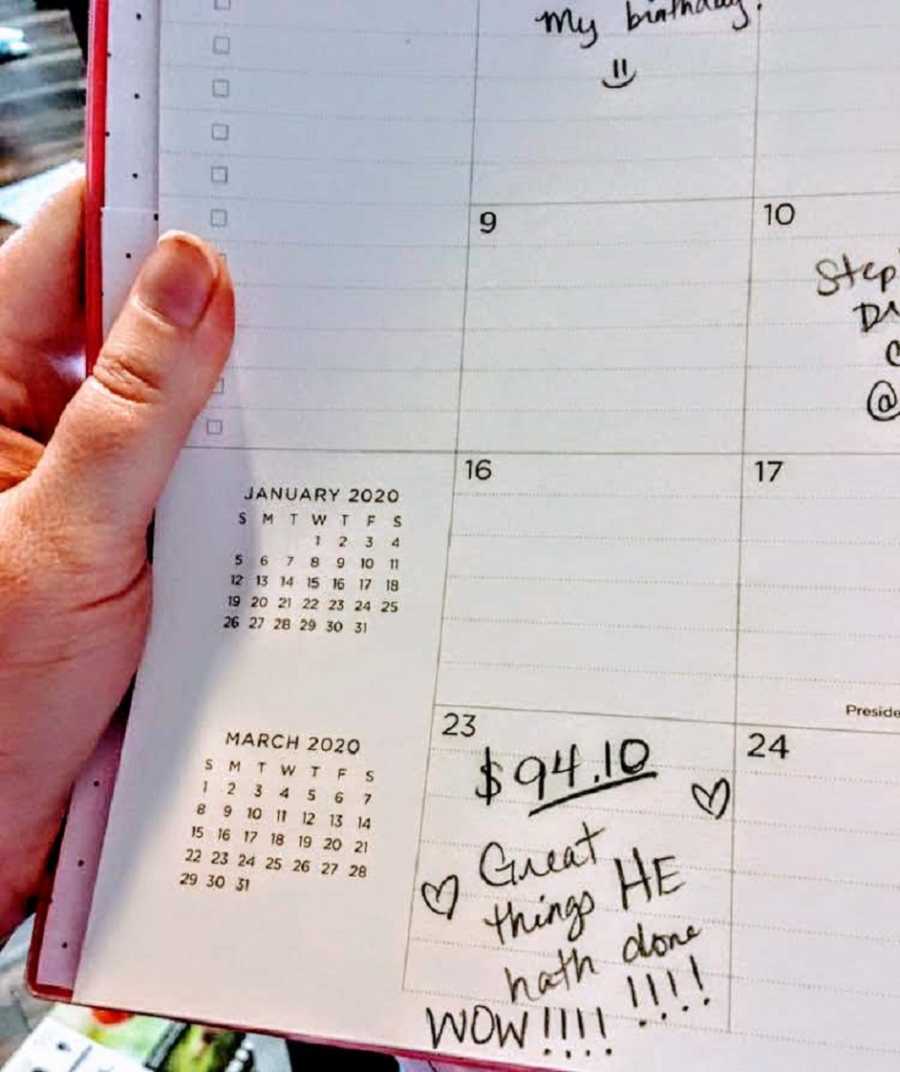 My birthday!
9
10
Step
@
16
17
JANUARY 2020
S M T W T F S
1 2 3 4
5 6 7 8 9 10 11
12 13 14 15 16 17 18
19 20 21 22 23 24 25
26 27 28 29 30 31
Preside
MARCH 2020
S M T W T F S
1 2 3 4 5 6 7
8 9 10 11 12 13 14
15 16 17 18 19 20 21
22 23 24 25 26 27 28
29 30 31
23
$94.10
Great
things HE
hath done
!!!!
WOW!!!!
24